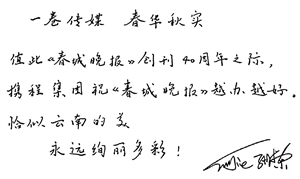 一卷传媒 春华秋实
值此《春城晚报》创刊40周年之际，
携程集团祝《春城晚报》越办越好。
恰似云南的美
永远绚丽多彩！